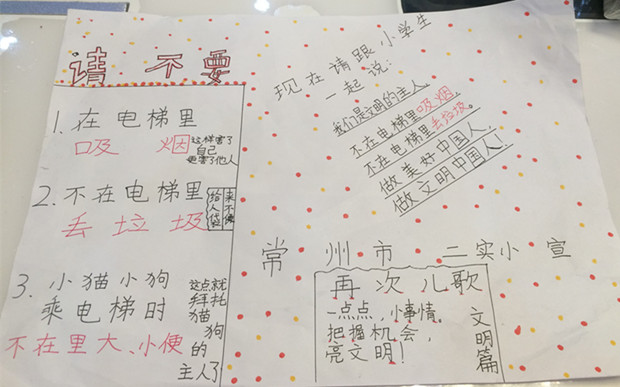 请不要
1.在电梯里
吸烟
这样害了
自己
更害了他人
2.不在电梯里
丢垃圾
给人袋
来不便
3.小猫小狗
乘电梯时
不在里大、小便
这点就
拜托
猫
狗
的
主人了
现在请跟小学生
一起说:
我们是文明的主人.
不在电梯里吸烟.
不在电梯里丢垃圾.
做美好中国人.
做文明中国人.
常州市二实小宣
再次儿歌
一点点,小事情,
把握机会,
亮文明!
文明篇